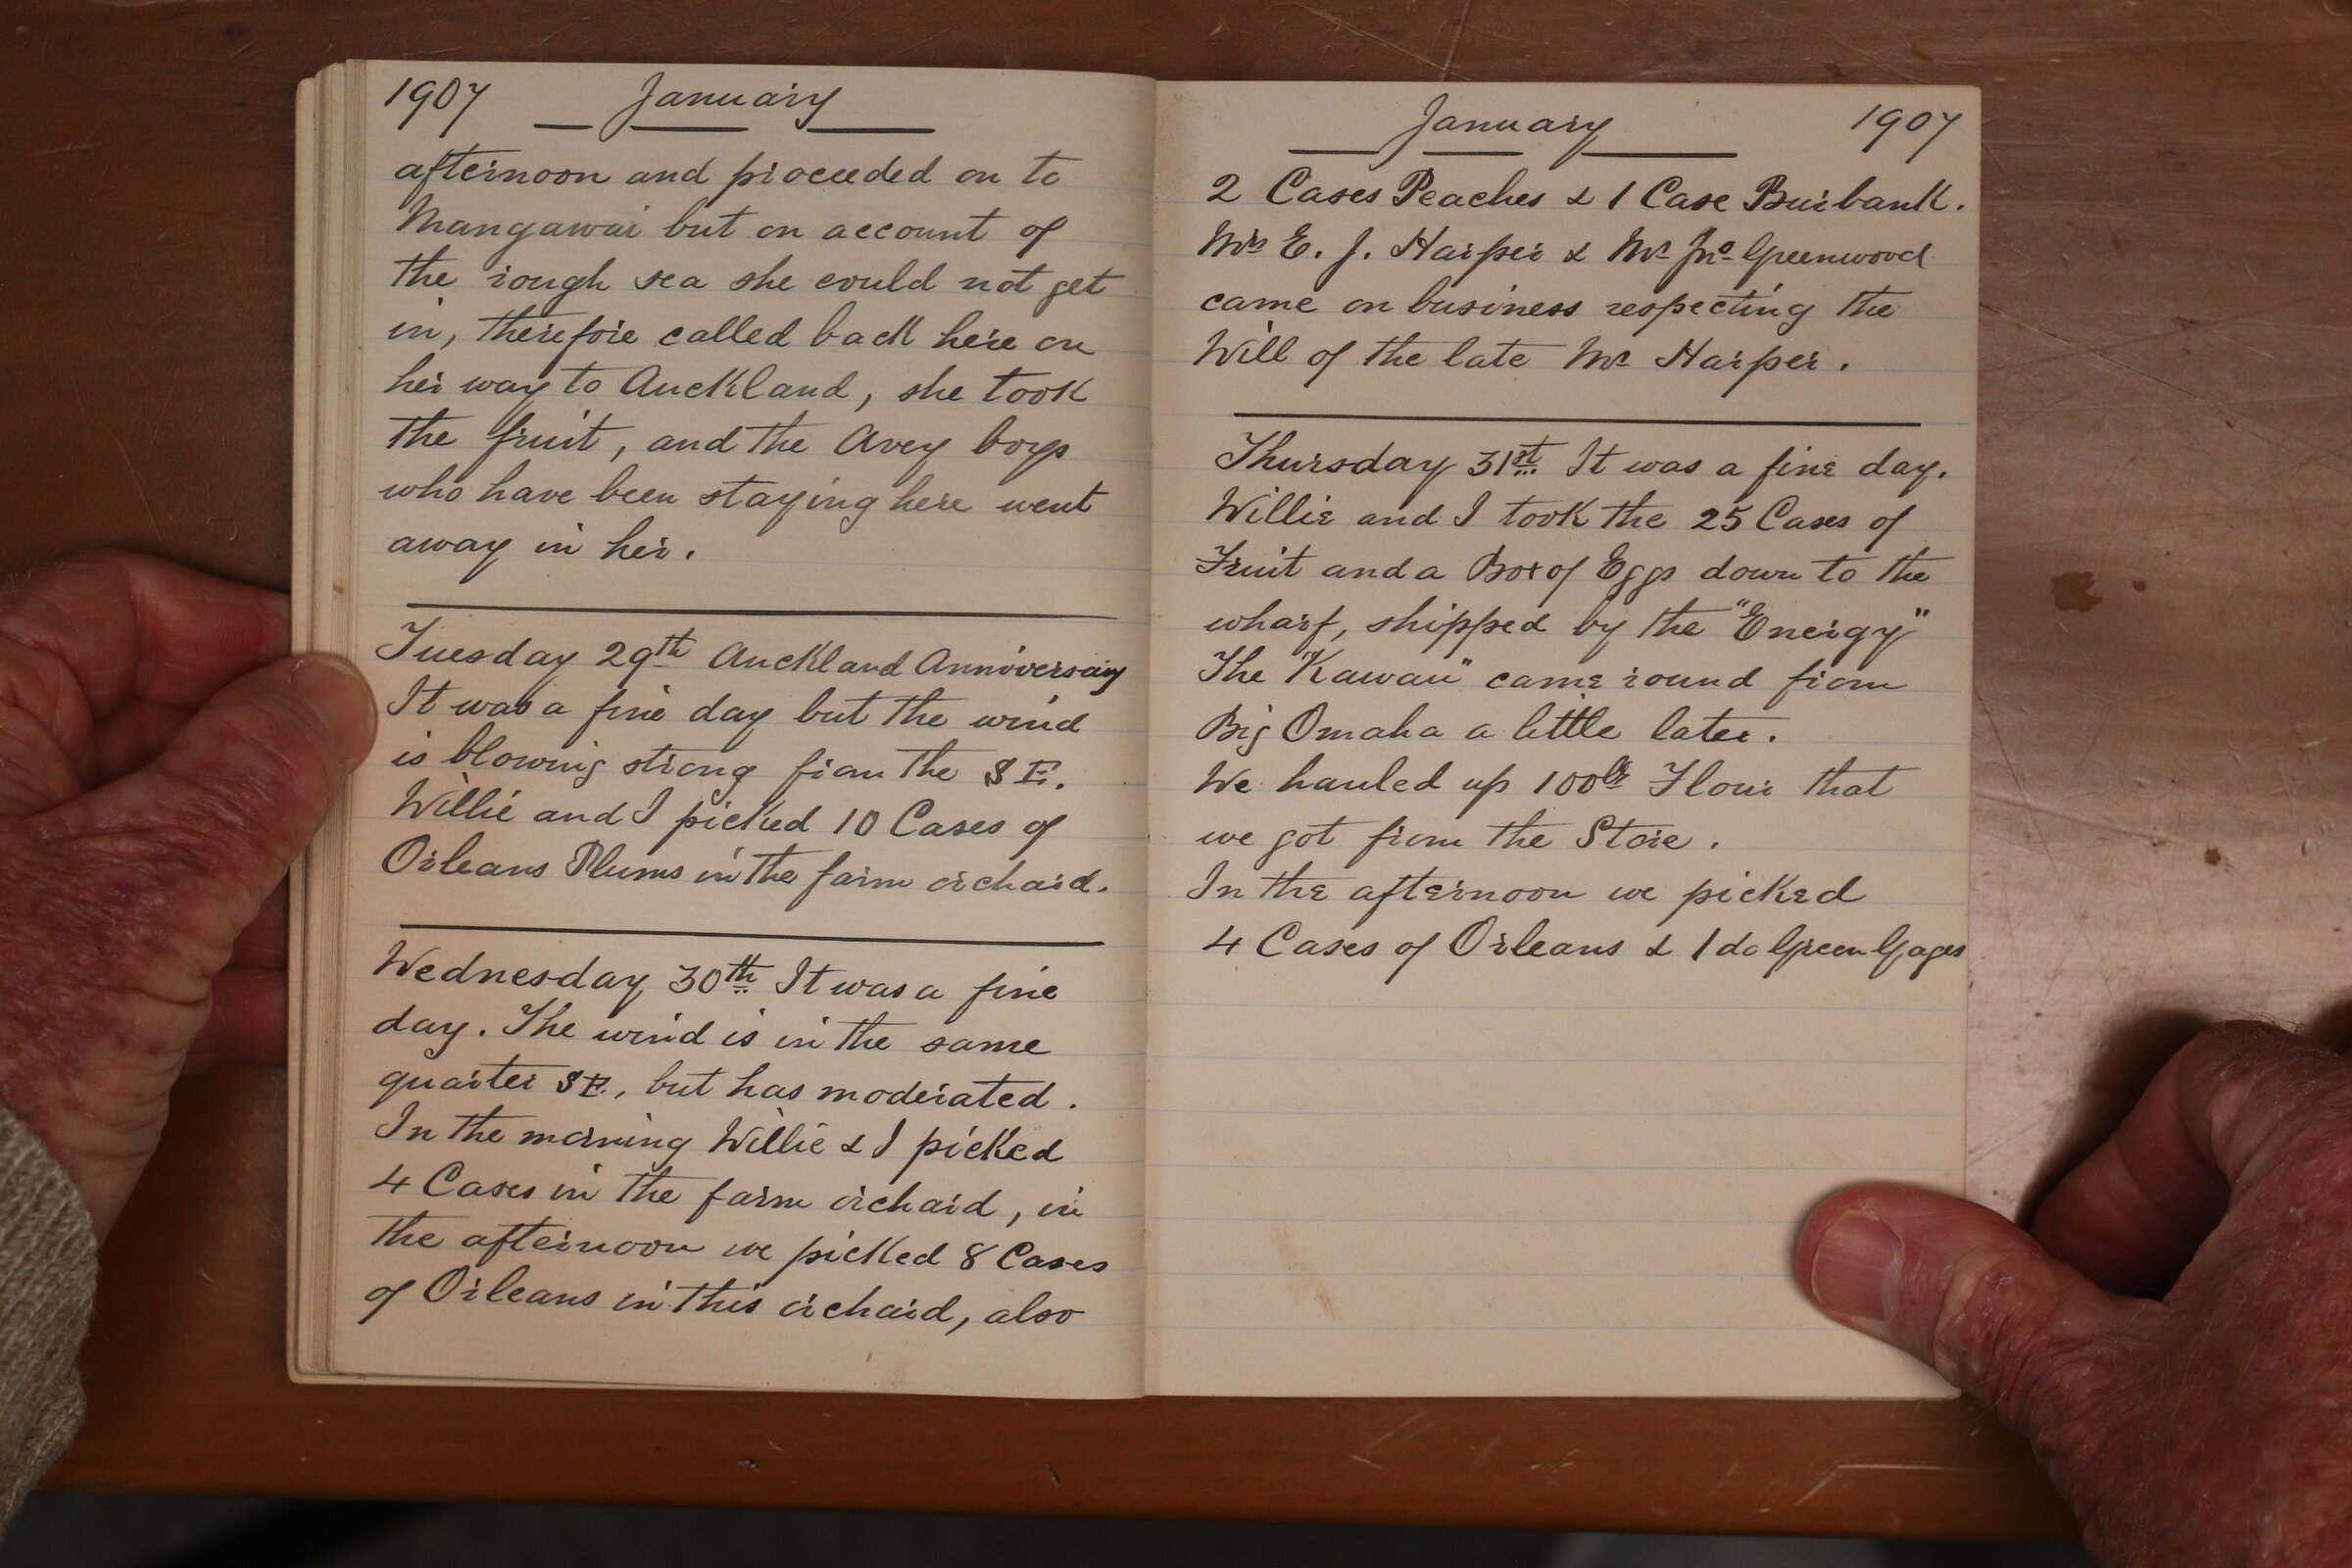 1907 January
afternoon and proceeded on to
Mangawai but on account of
the rough sea she could not get
in, therefore called back here on
her way to Auckland, she took
the fruit, and the Avey boys
who have been staying here went
away in her.
Tuesday 29th Auckland Anniversary
It was a fine day but the wind
is blowing strong from the S E.
Willie and I picked 10 Cases of
Orleans Plums in the farm orchard.
Wednesday 30th It was a fine
day. The wind is in the same
quarter S E., but has moderated.
In the morning Willie & I picked
4 Cases in the farm orchard, in
the afternoon we picked 8 Cases
of Orleans in this orchard, also
January 1907
2 Cases Peaches & 1 Case Burbank.
Mrs E. J. Harper & Mr Jno Greenwood
came on business respecting the
Will of the late Mr Harper.
Thursday 31st It was a fine day.
Willie and I took the 25 Cases of
Fruit and a Box of Eggs down to the
wharf, shipped by the "Energy"
The "Kawau" came round from
Big Omaha a little later.
We hauled up 100lb Flour that
we got from the Store.
In the afternoon we picked
4 Cases of Orleans & 1 do Green Gages